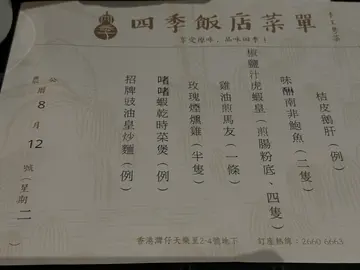 四季飯店菜單
桔皮鵝肝（例）
味醂南非鮑魚（二隻）
椒鹽汁虎蝦皇（煎腸粉底、四隻）
雞油煎馬友（一條）
玫瑰煙燻雞（半隻）
啫啫蝦乾時菜煲（例）
招牌豉油皇炒麵（例）
8月12號（星期二
香港灣仔天樂里2-4號地下 訂座熱線：2660 6663